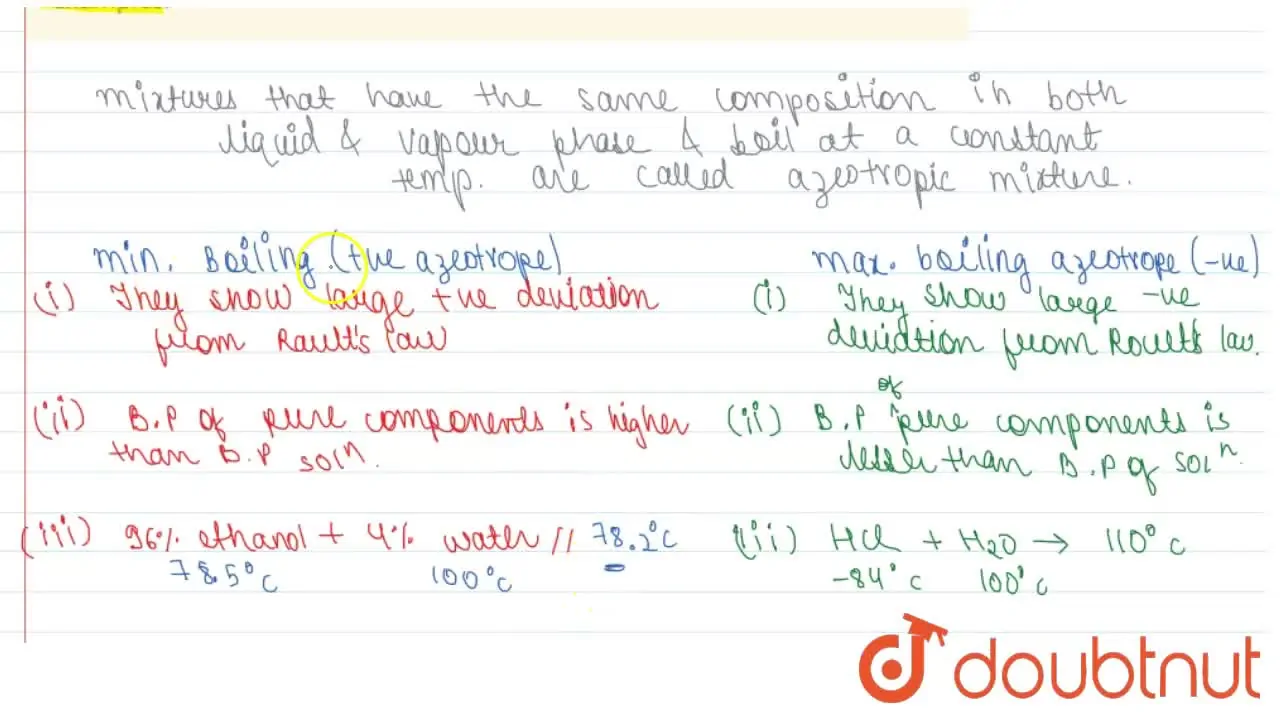 mixtures that have the same composition in both
liquid & vapour phase & boil at a constant
temp. are called azeotropic mixture.
min. Boiling (+ve azeotrope)
(i) They show large +ve deviation
from Rault's law
(ii) B.P of pure components is higher
than B.P solⁿ.
(iii) 96% ethanol + 4% water // 78.2°C
78.5°C 100°C
max. boiling azeotrope (-ve)
(i) They show large -ve
deviation from Roult's law.
(ii) B.P of pure components is
lesser than B.P of solⁿ.
(iii) HCl + H2O → 110°C
-84°C 100°C
doubtnut